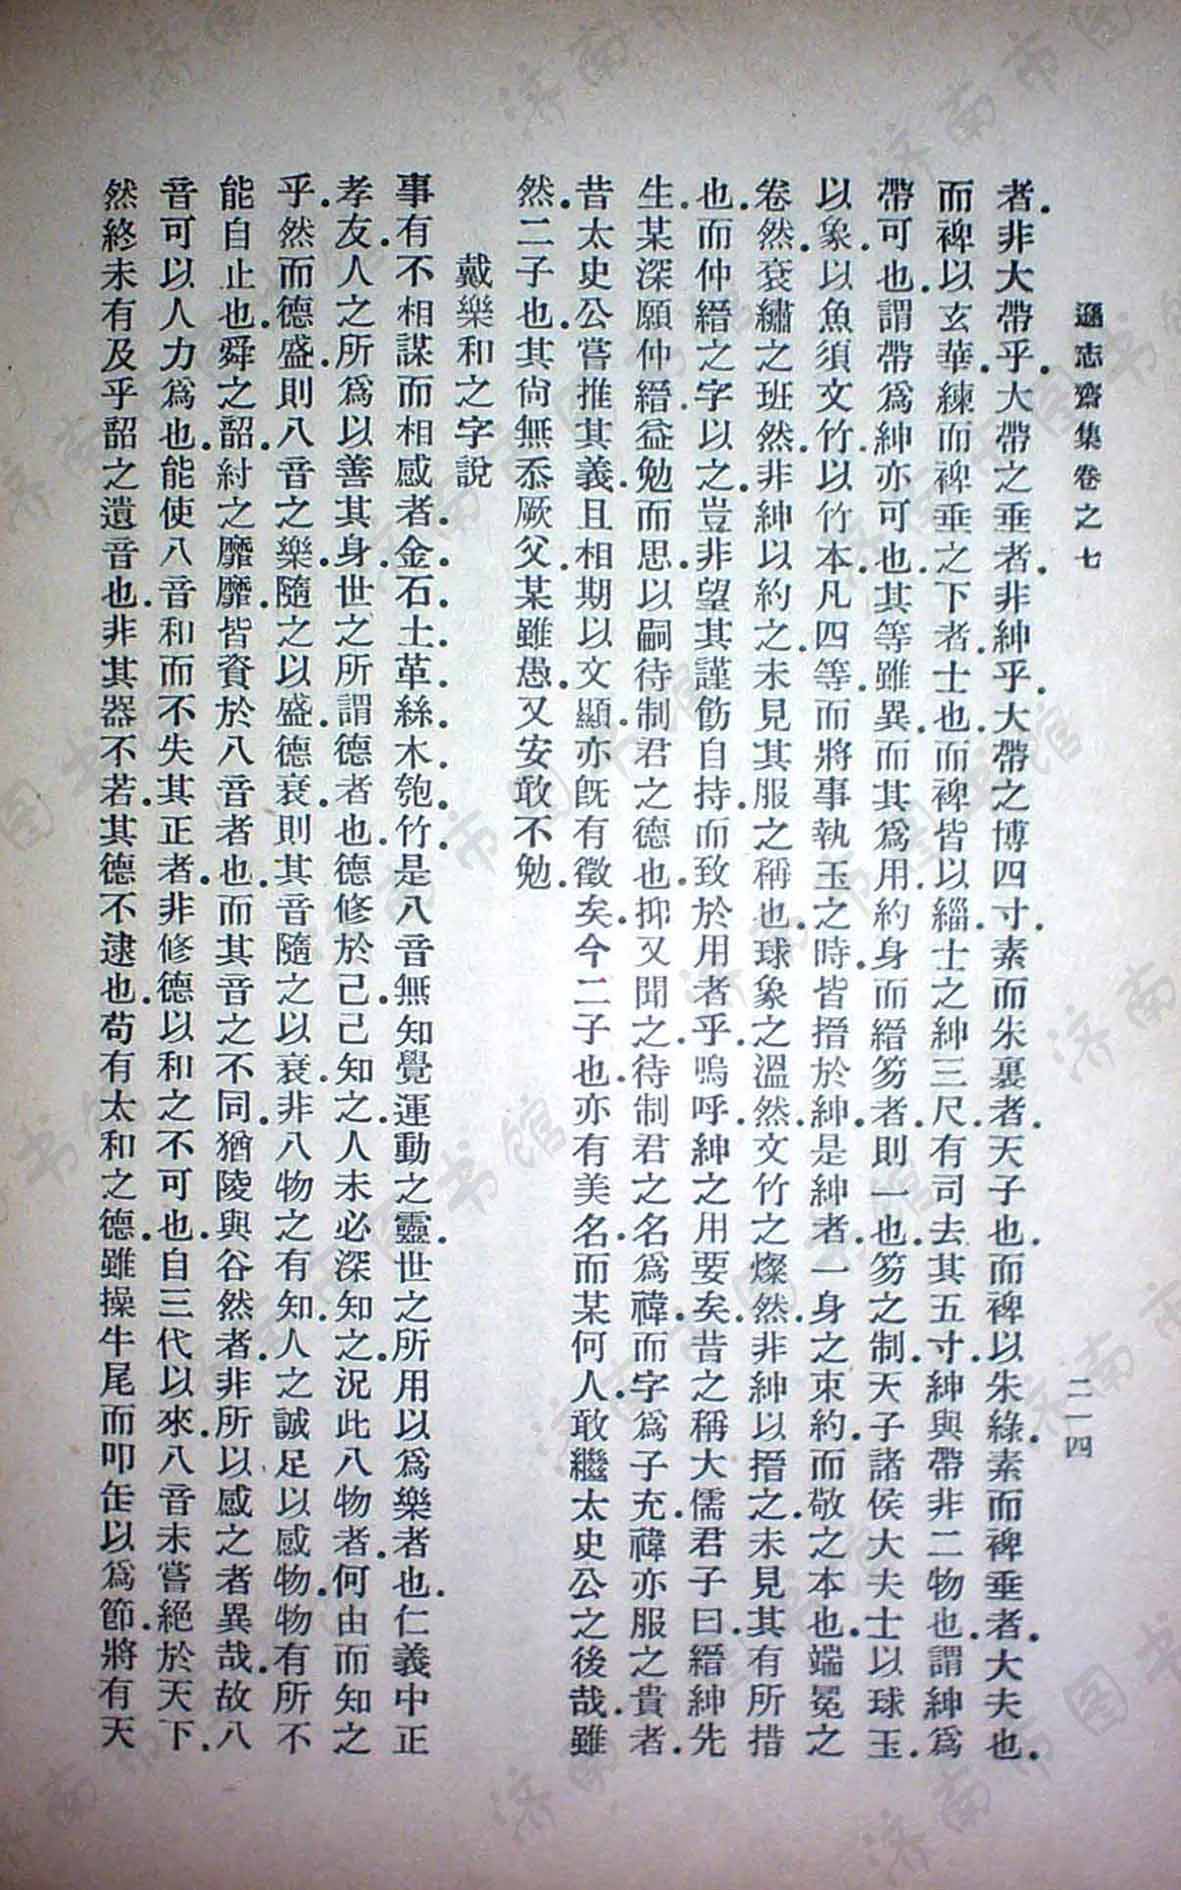 遜志齋集卷之七 二一四
者。非大帶乎。大帶之垂者。非紳乎。大帶之博四寸。素而朱裏者。天子也。而裨以朱綠。素而裨垂者。大夫也。
而裨以玄華。練而裨垂之下者。士也。而裨皆以緇。士之紳三尺。有司去其五寸。紳與帶非二物也。謂紳爲
帶可也。謂帶爲紳亦可也。其等雖異。而其爲用。約身而縉笏者。則一也。笏之制。天子諸侯大夫士。以球玉。
以象。以魚須文竹。以竹本。凡四等。而將事執玉之時。皆搢於紳。是紳者。一身之束約。而敬之本也。端冕之
卷然。袞繡之班然。非紳以約之。未見其服之稱也。球象之溫然。文竹之燦然。非紳以搢之。未見其有所措
也。而仲縉之字以之。豈非望其謹飭自持。而致於用者乎。嗚呼。紳之用要矣。昔之稱大儒君子曰。縉紳先
生。某深願仲縉益勉而思。以嗣待制君之德也。抑又聞之。待制君之名爲禕。而字爲子充。禕亦服之貴者。
昔太史公嘗推其義。且相期以文顯。亦旣有徵矣。今二子也。亦有美名。而某何人。敢繼太史公之後哉。雖
然。二子也。其尙無忝厥父。某雖愚。又安敢不勉。
戴樂和之字說
事有不相謀而相感者。金。石。土。革。絲。木。匏。竹。是八音。無知覺運動之靈。世之所用以爲樂者也。仁義中正
孝友。人之所爲以善其身。世之所謂德者也。德修於己。己知之。人未必深知之。況此八物者。何由而知之
乎。然而德盛。則八音之樂。隨之以盛。德衰。則其音隨之以衰。非八物之有知。人之誠足以感物。物有所不
能自止也。舜之韶。紂之靡靡。皆資於八音者也。而其音之不同。猶陵與谷然者。非所以感之者異哉。故八
音可以人力爲也。能使八音和而不失其正者。非修德以和之不可也。自三代以來。八音未嘗絕於天下。
然終未有及乎韶之遺音也。非其器不若。其德不逮也。苟有太和之德。雖操牛尾而叩缶以爲節。將有天